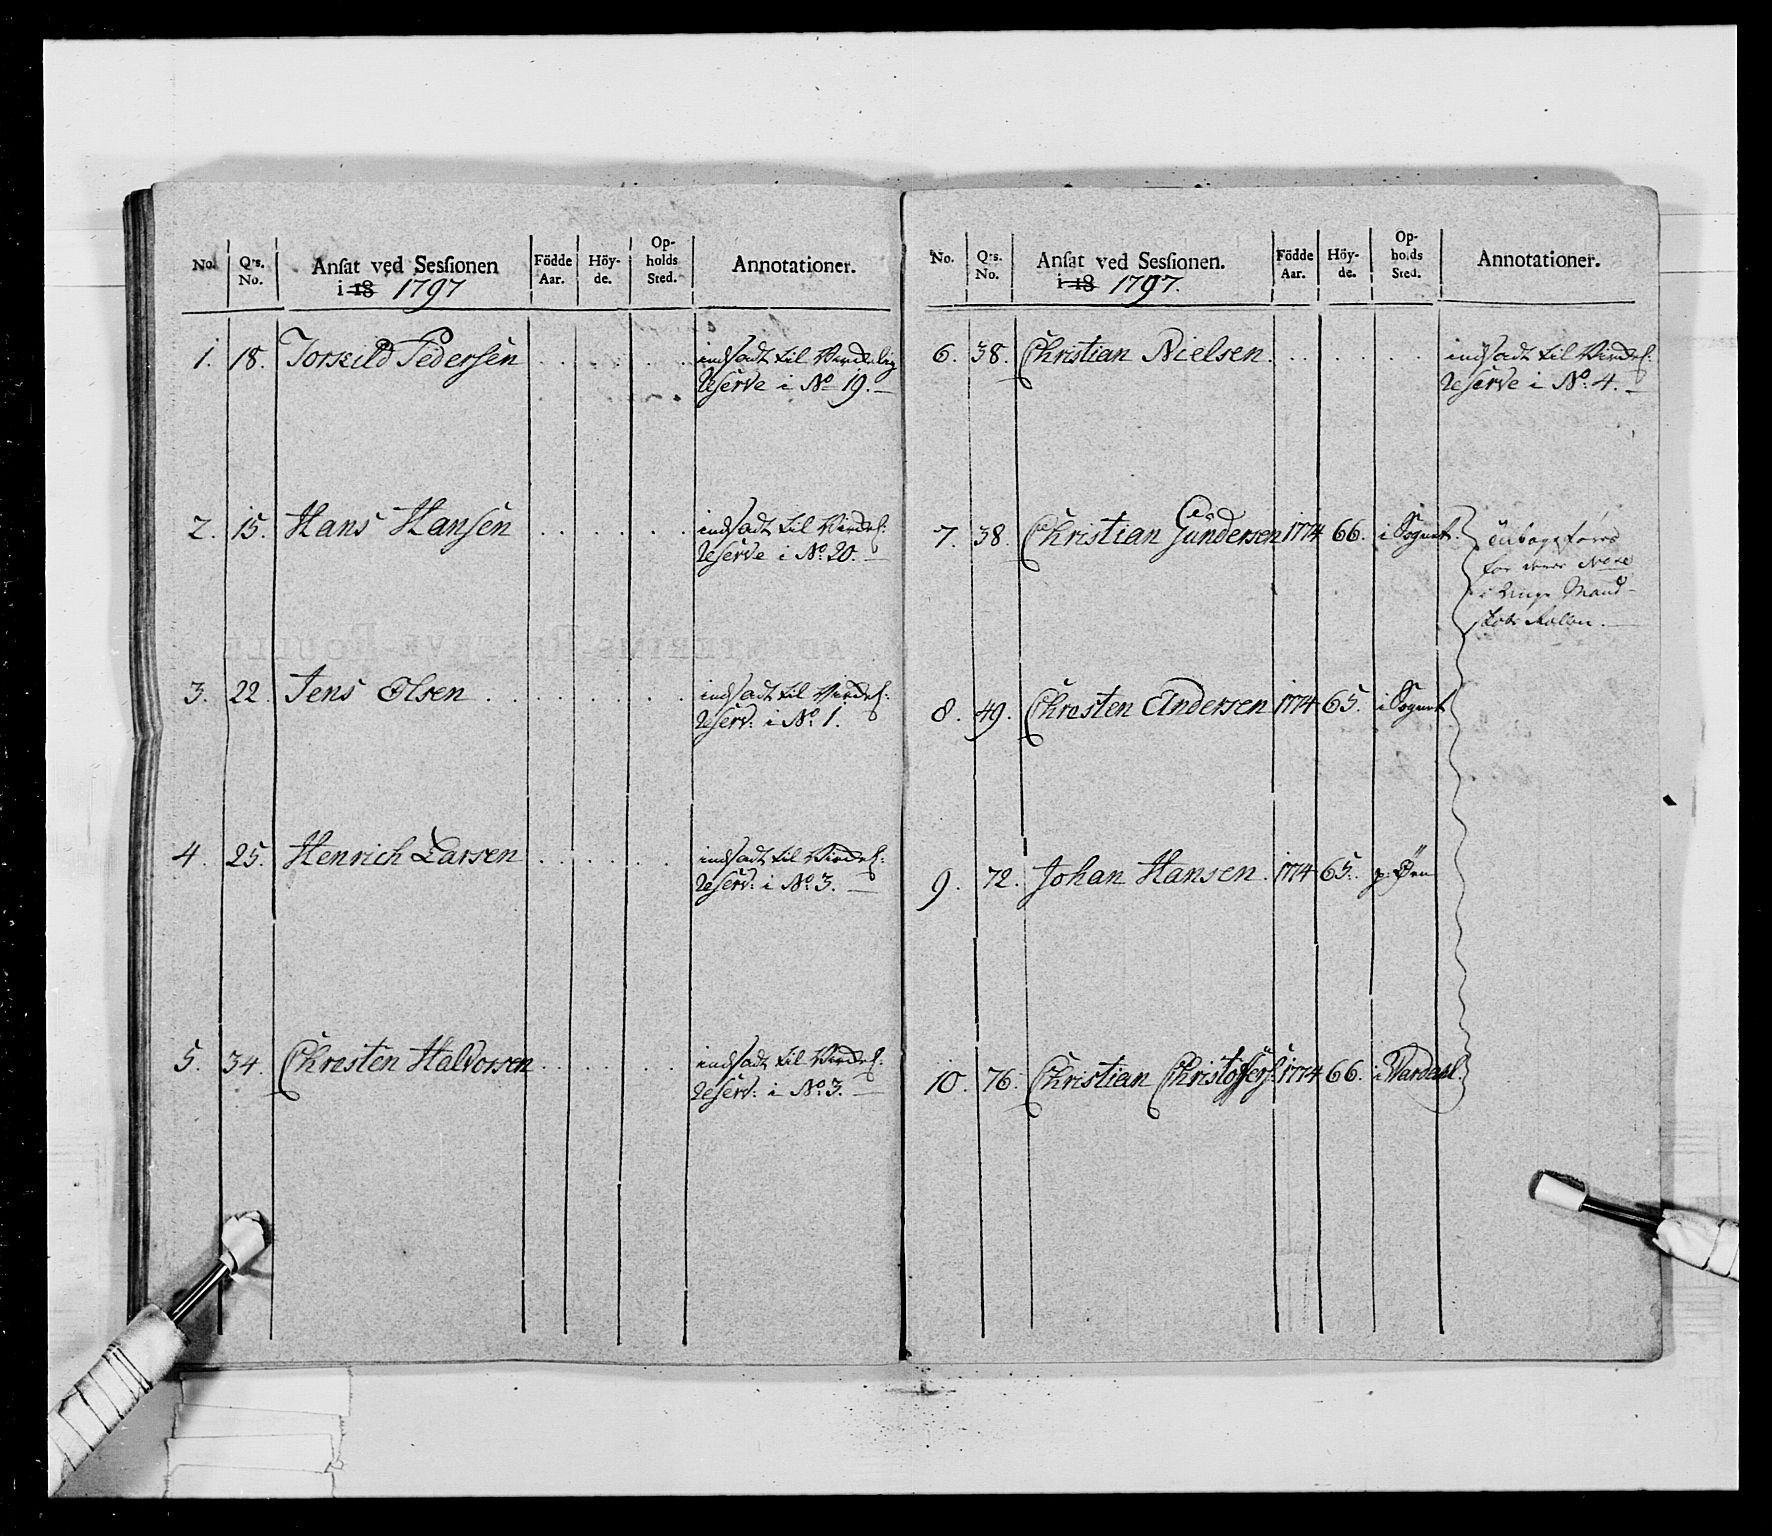 No. Qrs. No. Ansat ved Sessionen i 18 1797 Födde Aar. Höy-de. Op-holds Sted. Annotationer.
1. 18. Torkild Pedersen . . . . . . indsadt til Virkelig
Reserve i No 19. —
2. 15. Hans Hansen . . . . . . indsadt til Virkel:
Reserve i No: 20. —
3. 22. Jens Olsen . . . . . . indsadt til Virkel:
Reserv: i No: 1.
4. 25. Henrich Larsen . . . . . . indsadt til Virkel:
Reserv: i No: 3. —
5. 34. Christen Halvorsen . . . . . . indsadt til Virkel:
Reserv: i No: 3. —
No. Qrs. No. Ansat ved Sessionen. i 18 1797. Födde Aar. Höy-de. Op-holds Sted. Annotationer.
6. 38. Christian Nielsen . . . . . . indsadt til Virkel:
Reserve i No: 4. —
7. 38. Christian Gundersen 1774 66. i Sognet.
tilbageføres
for deres
i Unge Mand-
skabs Rollen. —
8. 49. Christen Andersen 1774 65. i Sognet
9. 72. Johan Hansen. 1774 65. p: Øen
10. 76. Christian Christophers: 1774 66. i Vardal.